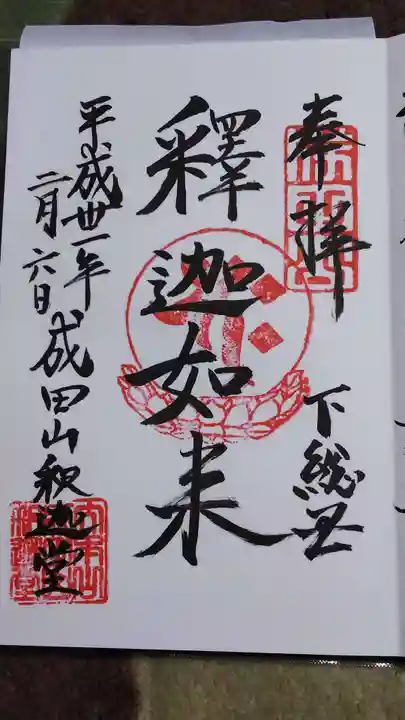 奉拝
下総国
釋迦如来
平成卅一年
二月六日
成田山釈迦堂